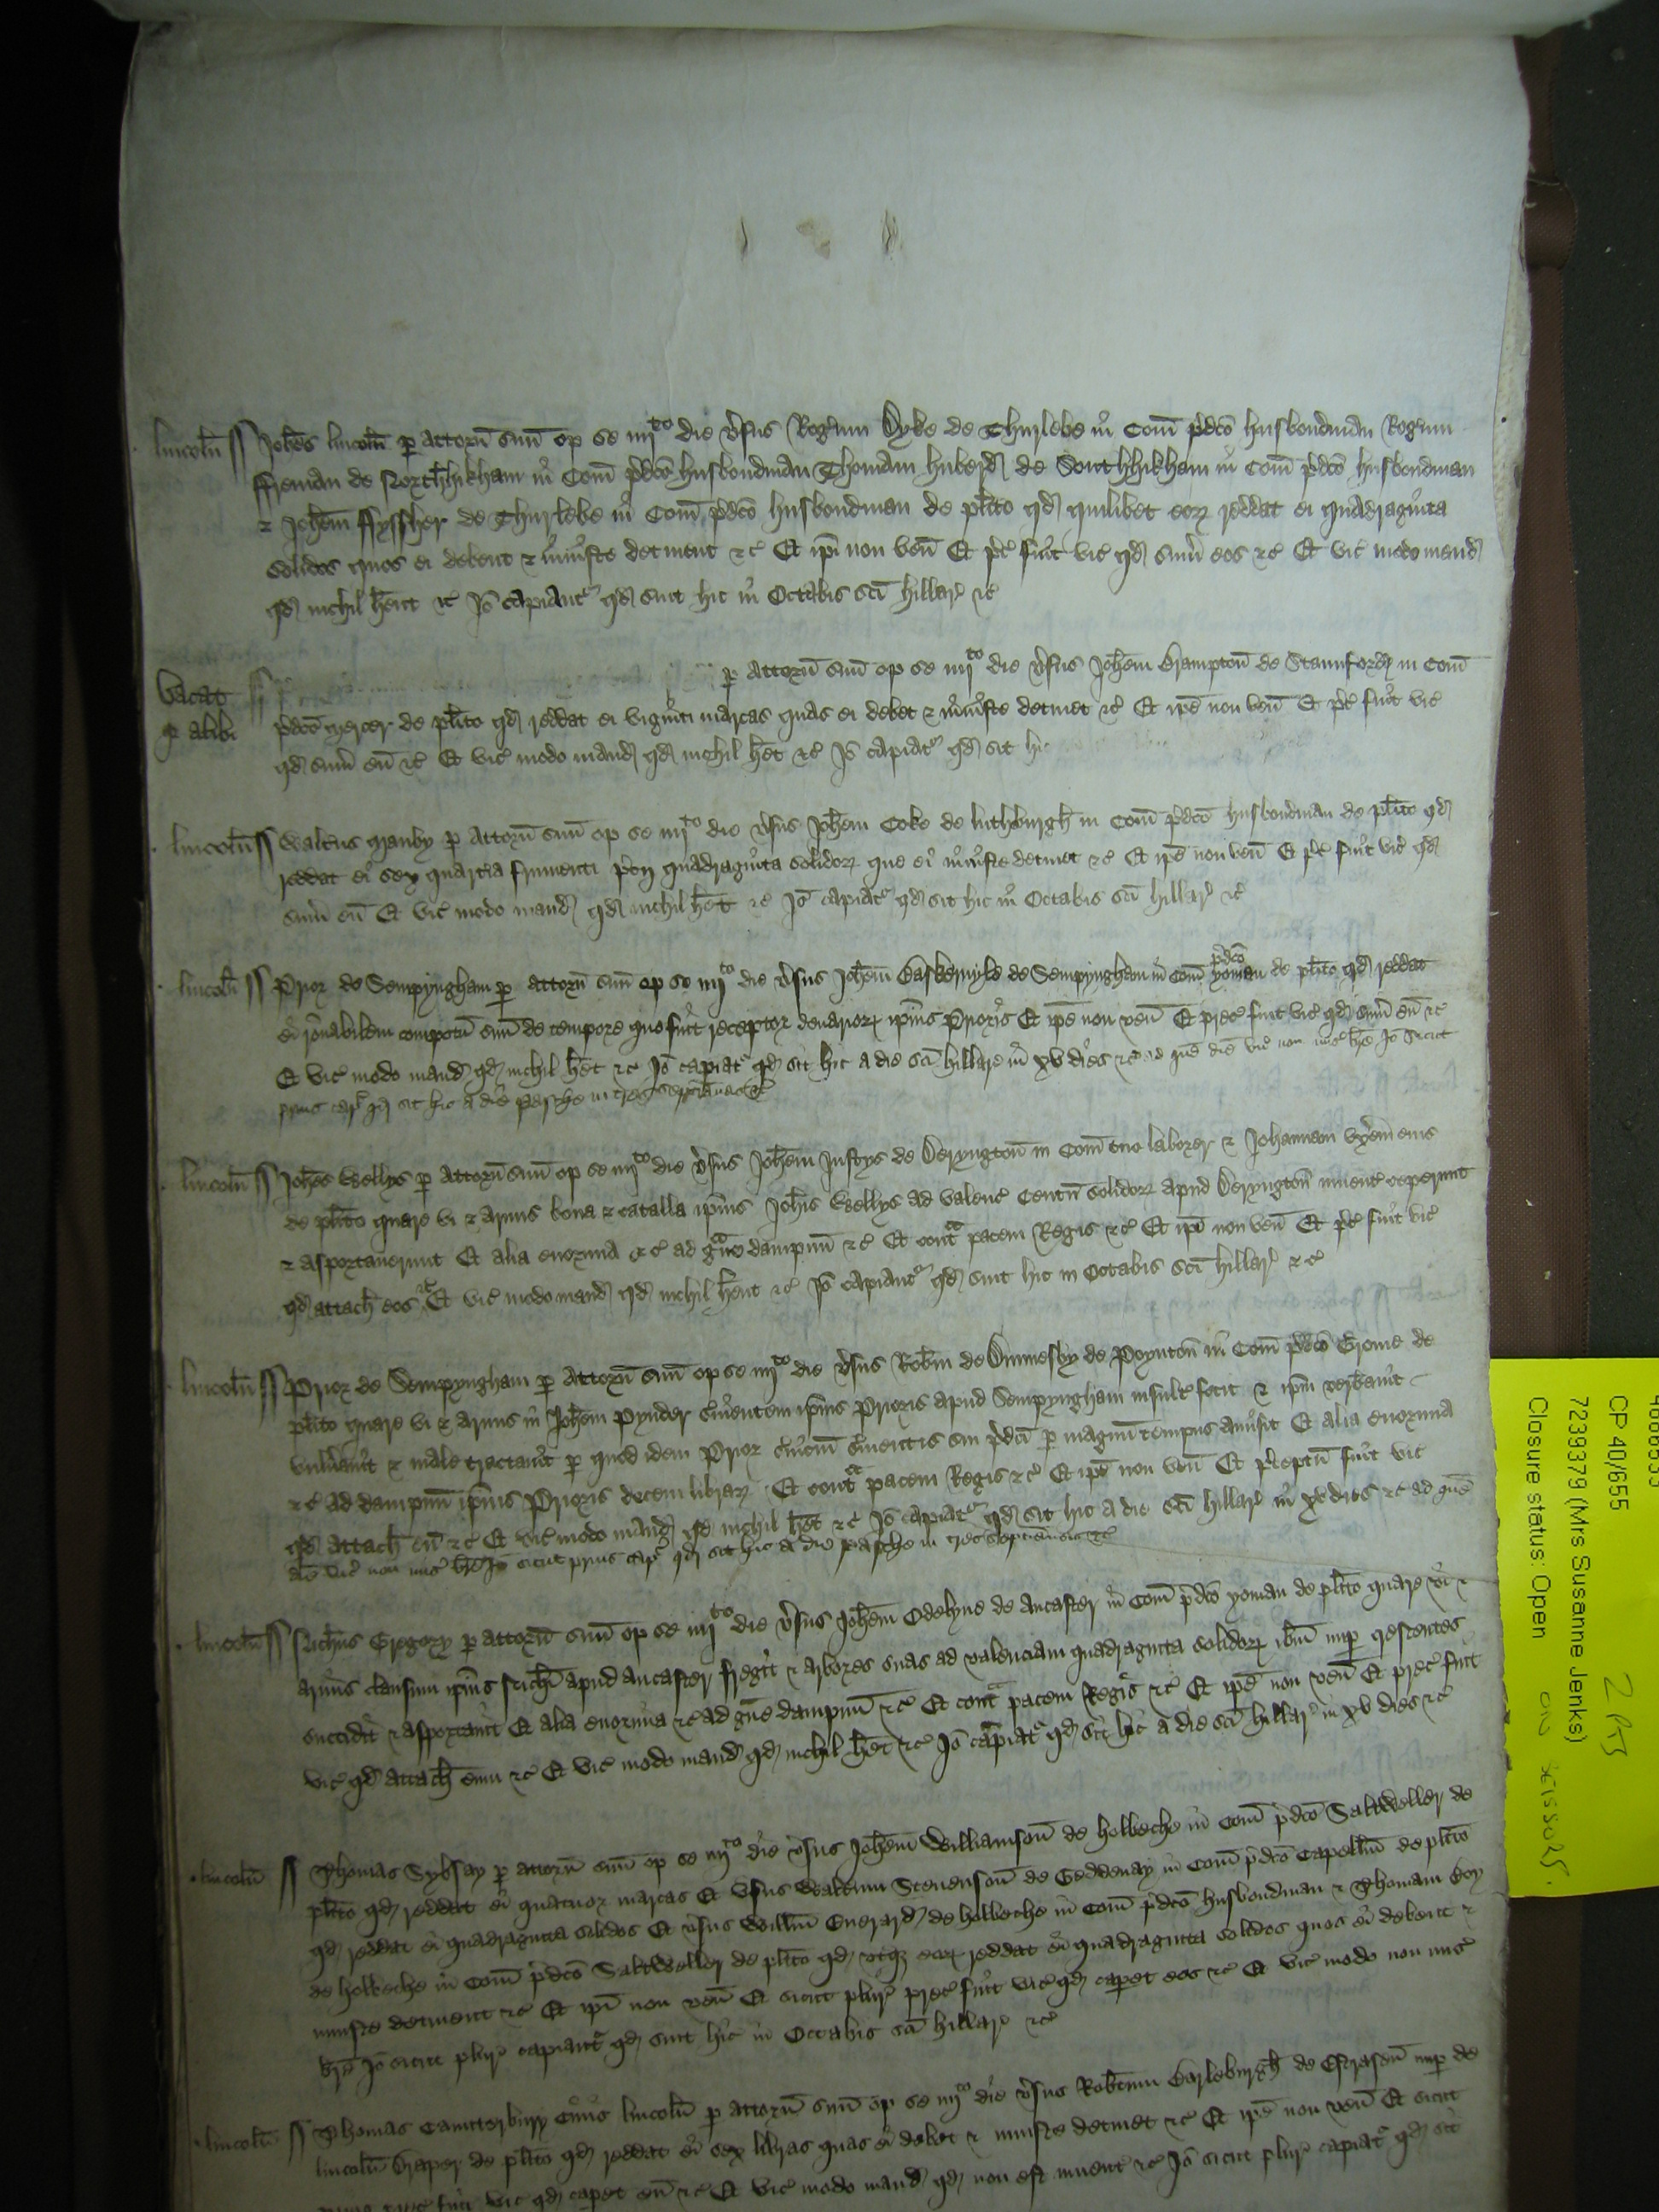 lincoln̄ Joħes lincoln̄ p attorn̄ suū op se iiijto die v̾sus Rog̾um Dyke de Thurlebe in Com̄ p̄dc̄o husbondman Rog̾um
ffreman de Northhikham in Com̄ p̄dc̄o husbondman Thomam huberd de Southhikham in Com̄ p̄dc̄o husbondman
& Joħem ffyssher de Thurlebe in Com̄ p̄dc̄o husbondman de plito qd quilibet eoꝝ reddat ei quadraginta
solidos quos ei debent & iniuste detinent &c Et ip̄i non ven̄ Et p̄c̄ fuit vic̄ qd sum̄ eos &c Et vic̄ modo mand
qd nichil hent &c Jo capiant̾ qd sint hic in Octabis sc̄i hillar̄ &c
Vacat
q̄ alibi
p attorn̄ suū op se iiijto die v̾sus Joħem Brampton̄ de Staunford in Com̄
p̄dc̄o mercer de plito qd reddat ei viginti marcas quas ei debet & iniuste detinet &c Et ip̄e non ven̄ Et p̄c̄ fuit vic̄
qd sum̄ eū &c Et vic̄ modo mand qd nichil het &c Jo capiat̾ qd sit hic
lincoln̄ Walt̾us Manby p attorn̄ suū op se iiijto die v̾sus Joħem Coke de luthburgh in Com̄ p̄dc̄o husbondman de plito qd
reddat ei sex quart̾ia frumenti p̄cij quadraginta solidoꝝ que ei iniuste detinet &c Et ip̄e non ven̄ Et p̄c̄ fuit vic̄ qd
sum̄ eū Et vic̄ modo mand qd nichil het &c Jo capiat̾ qd sit hic in Octabis sc̄i hillar̄ &c
lincoln̄ Prior de Sempyngham p attorn̄ suū op se iiijto die v̾sus Joħem Baskervyle de Sempyngham in Com̄ p̄dc̄o yoman de plito qd reddat
ei r̄onabilem compotū suū de tempore quo fuit receptor denarioꝝ ip̄ius Prioris Et ip̄e non ven̄ Et prec̄ fuit vic̄ qd sum̄ eū &c
Et vic̄ modo mand qd nichil het &c Jo capiat̾ qd sit hic a die sc̄i hillar̄ in xv dies &c ad quē diē vic̄ non mis̄ br̄e Jo sicut
prius cap̄ qd sit hic a die Pasche in tres septimanas &c
lincoln̄ Joħes Wellys p attorn̄ suū op se iiijto die v̾sus Joħem Justys de Deryngton̄ in Com̄ tuo laborer & Johannam vx̄em eius
de plito quare vi & armis bona & catalla ip̄ius Joħis Wellys ad valenc̄ Centū solidoꝝ apud Deryngton̄ inuent̾ ceperunt
& asportauerunt Et alia enormia &c ad g̾ue dampnū &c Et cont̾ pacem Regis &c Et ip̄i non ven̄ Et p̄c̄ fuit vic̄
qd attach eos &c Et vic̄ modo mand qd nichil hent &c Jo capiant̾ qd sint hic in Octabis sc̄i hillar̄ &c
lincoln̄ Prior de Sempyngham p attorn̄ suū op se iiijto die v̾sus Robtm de Dunnesby de Poynton̄ in Com̄ p̄dc̄o Grome de
plito quare vi & armis in Joħem Pynder s̾uientem ip̄ius Prioris apud Sempyngham insult̾ fecit & ip̄m verbauit
vuln̾auit & male tractauit p quod idem Prior s̾uiciū s̾uientis sui p̄dc̄i p magnū tempus amisit Et alia enormia
&c ad dampnū ip̄ius Prioris decem libraꝝ Et cont̾ pacem Regis &c Et ip̄e non ven̄ Et p̄ceptū fuit vic̄
qd attach eū &c Et vic̄ modo mand qd nichil het &c Jo capiat̾ qd sit hic a die sc̄i hillar̄ in xv dies &c ad quē
diē vic̄ non mis̄ br̄e Jo sicut prius cap̄ qd sit hic a die Pasche in tres septimanas &c
lincoln̄ Ric̄hus Gregory p attorn̄ suū op se iiijto die v̾sus Joħem Odelyne de Ancaster in Com̄ p̄dc̄o yoman de plito quare vi &
armis clausum ip̄ius Ric̄hi apud Ancaster fregit & arbores suas ad valenciam quadraginta solidoꝝ ibm̄ nup crescentes
succidit & asportauit Et alia enormia &c ad g̾ue dampnū &c Et cont̾ pacem Regis &c Et ip̄e non ven̄ Et prec̄ fuit
vic̄ qd attach eum &c Et vic̄ modo mand qd nichil het &c Jo capiat̾ qd sit hic a die sc̄i hillar̄ in xv dies &c
lincoln̄ Thomas Sybsay p attorn̄ suū op se iiijto die v̾sus Joħem Williamson̄ de holbeche in Com̄ p̄dc̄o Saltweller de
plito qd reddat ei quatuor marcas Et v̾sus Walt̾um Stevenson̄ de Geddenay in Com̄ p̄dc̄o Capellm̄ de plito
qd reddat ei quadraginta solidos Et v̾sus Willm̄ Euerard de holbeche in Com̄ p̄dc̄o husbondman & Thomam Boy
de holbeche in Com̄ p̄dc̄o Saltweller de plito qd vt̾qꝫ eoꝝ reddat ei quadraginta solidos quos ei debent &
iniuste detinent &c Et ip̄i non ven̄ Et sicut plur̄ prec̄ fuit vic̄ qd caperet eos &c Et vic̄ modo non mis̄
br̄e Jo sicut plur̄ capiant̾ qd sint hic in Octabis sc̄i hillar̄ &c
lincoln̄ Thomas Caunterbury Ciuis lincoln̄ p attorn̄ suū op se iiijto die v̾sus Robtum Barleburgh de nup de
lincoln̄ Draper de plito qd reddat ei sex libras quas ei debet & iniuste detinet &c Et ip̄e non ven̄ Et sicut
fuit vic̄ qd caperet eū &c Et vic̄ modo mand qd non est inuent̾ &c Jo sicut plur̄ capiat̾ qd sit
CP 40/655
7239379 (Mrs Susanne Jenks)
Closure status: Open